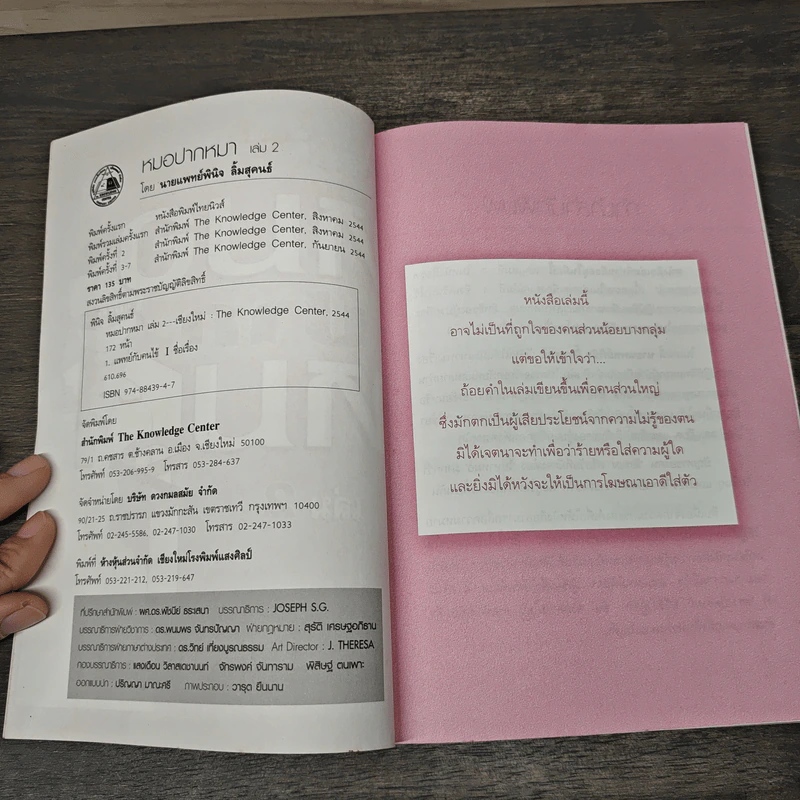 หมอปากหมา เล่ม 2
โดย นายแพทย์พินิจ ลิ้มสุคนธ์
พิมพ์ครั้งแรก หนังสือพิมพ์ไทยนิวส์
พิมพ์รวมเล่มครั้งแรก สำนักพิมพ์ The Knowledge Center, สิงหาคม 2544
พิมพ์ครั้งที่ 2 สำนักพิมพ์ The Knowledge Center, สิงหาคม 2544
พิมพ์ครั้งที่ 3-7 สำนักพิมพ์ The Knowledge Center, กันยายน 2544
ราคา 135 บาท
สงวนลิขสิทธิ์ตามพระราชบัญญัติลิขสิทธิ์
พินิจ ลิ้มสุคนธ์
หมอปากหมา เล่ม 2--เชียงใหม่ : The Knowledge Center, 2544
172 หน้า
1. แพทย์กับคนไข้ I ชื่อเรื่อง
610.696
ISBN 974-88439-4-7
จัดพิมพ์โดย
สำนักพิมพ์ The Knowledge Center
79/1 ถ.คชสาร ต.ช้างคลาน อ.เมือง จ.เชียงใหม่ 50100
โทรศัพท์ 053-206-995-9 โทรสาร 053-284-637
จัดจำหน่ายโดย บริษัท ดวงกมลสมัย จำกัด
90/21-25 ถ.ราชปรารภ แขวงมักกะสัน เขตราชเทวี กรุงเทพฯ 10400
โทรศัพท์ 02-245-5586, 02-247-1030 โทรสาร 02-247-1033
พิมพ์ที่ ห้างหุ้นส่วนจำกัด เชียงใหม่โรงพิมพ์แสงศิลป์
โทรศัพท์ 053-221-212, 053-219-647
ที่ปรึกษาสำนักพิมพ์ : ผศ.ดร.พัชนีย์ ธระเสนา บรรณาธิการ : JOSEPH S.G.
บรรณาธิการฝ่ายวิชาการ : ดร.พนมพร จันทรปัญญา ฝ่ายกฎหมาย : สุรัติ เศรษฐอภิธาน
บรรณาธิการฝ่ายภาษาต่างประเทศ : ดร.วิทย์ เที่ยงบูรณธรรม Art Director : J. THERESA
กองบรรณาธิการ : แสงเอือน วิลาสเดชานนท์ จักรพงค์ จันทาราม พิสิษฐ์ ตนเพาะ
ออกแบบปก : ปริญญา มาณะศรี ภาพประกอบ : วารุต ยืนนาน
หนังสือเล่มนี้
อาจไม่เป็นที่ถูกใจของคนส่วนน้อยบางกลุ่ม
แต่ขอให้เข้าใจว่า...
ถ้อยคำในเล่มเขียนขึ้นเพื่อคนส่วนใหญ่
ซึ่งมักตกเป็นผู้เสียประโยชน์จากความไม่รู้ของตน
มิได้เจตนาจะทำเพื่อว่าร้ายหรือใส่ความผู้ใด
และยิ่งมิได้หวังจะให้เป็นการโฆษณาเอาดีใส่ตัว